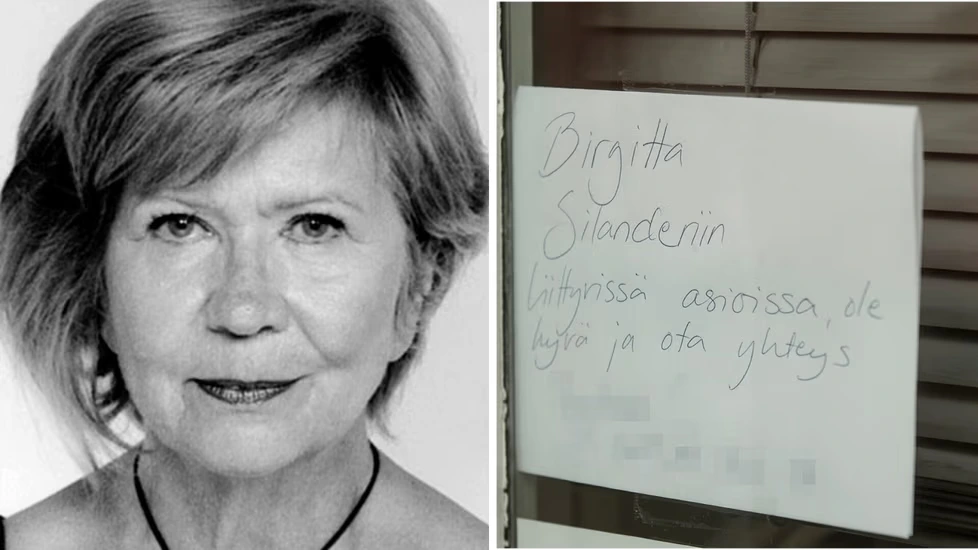 Birgitta
Silanderiin
liittyvissä asioissa, ole
hyvä ja ota yhteys